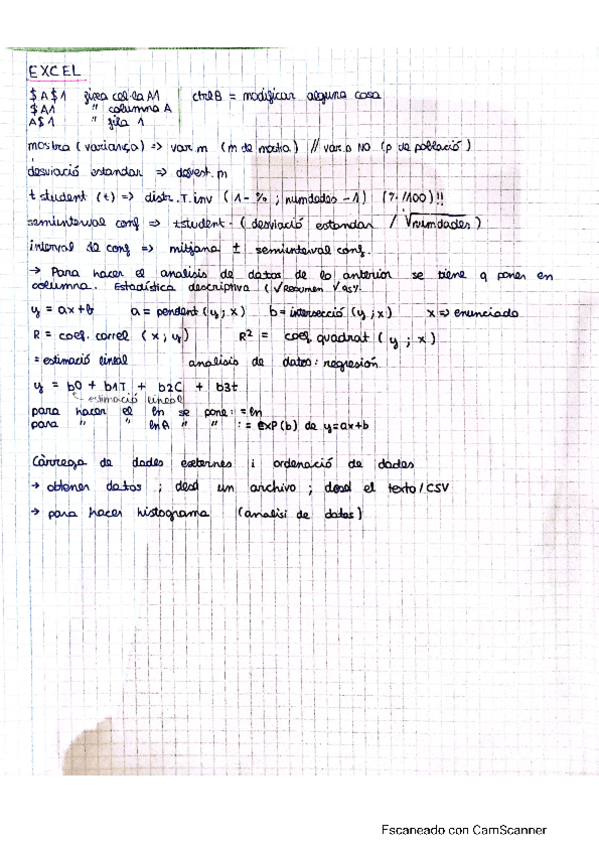 EXCEL
$A$1 fixa cel·la A1 ctrl B = modificar alguna cosa
$A1 " columna A
A$1 " fila 1
mostra (variança) => var.m (m de mostra) // var.p NO (p de població)
desviació estandar => desvest.m
t student (t) => distr.T.inv (1-% ; numdades -1) (%/100)!!
semiinterval conf => tstudent · (desviació estandar / √numdades)
interval de conf => mitjana ± semiinterval conf.
→ Para hacer el analisis de datos de lo anterior se tiene q poner en
columna. Estadística descriptiva (√Resumen √95%
y = ax+b a = pendent (y;x) b = intersecció (y;x) x => enunciado
R = coef. correl (x;y) R² = coef. quadrat (y;x)
= estimació lineal analisis de datos: regresión
y = b0 + b1T + b2C + b3t
estimació lineal
para hacer el ln se pone: =ln
para " " lnA " " : = EXP(b) de y=ax+b
Càrrega de dades externes i ordenació de dades
→ obtener datos ; desd un archivo ; desd el texto/CSV
→ para hacer histograma (analisi de datos)
Escaneado con CamScanner